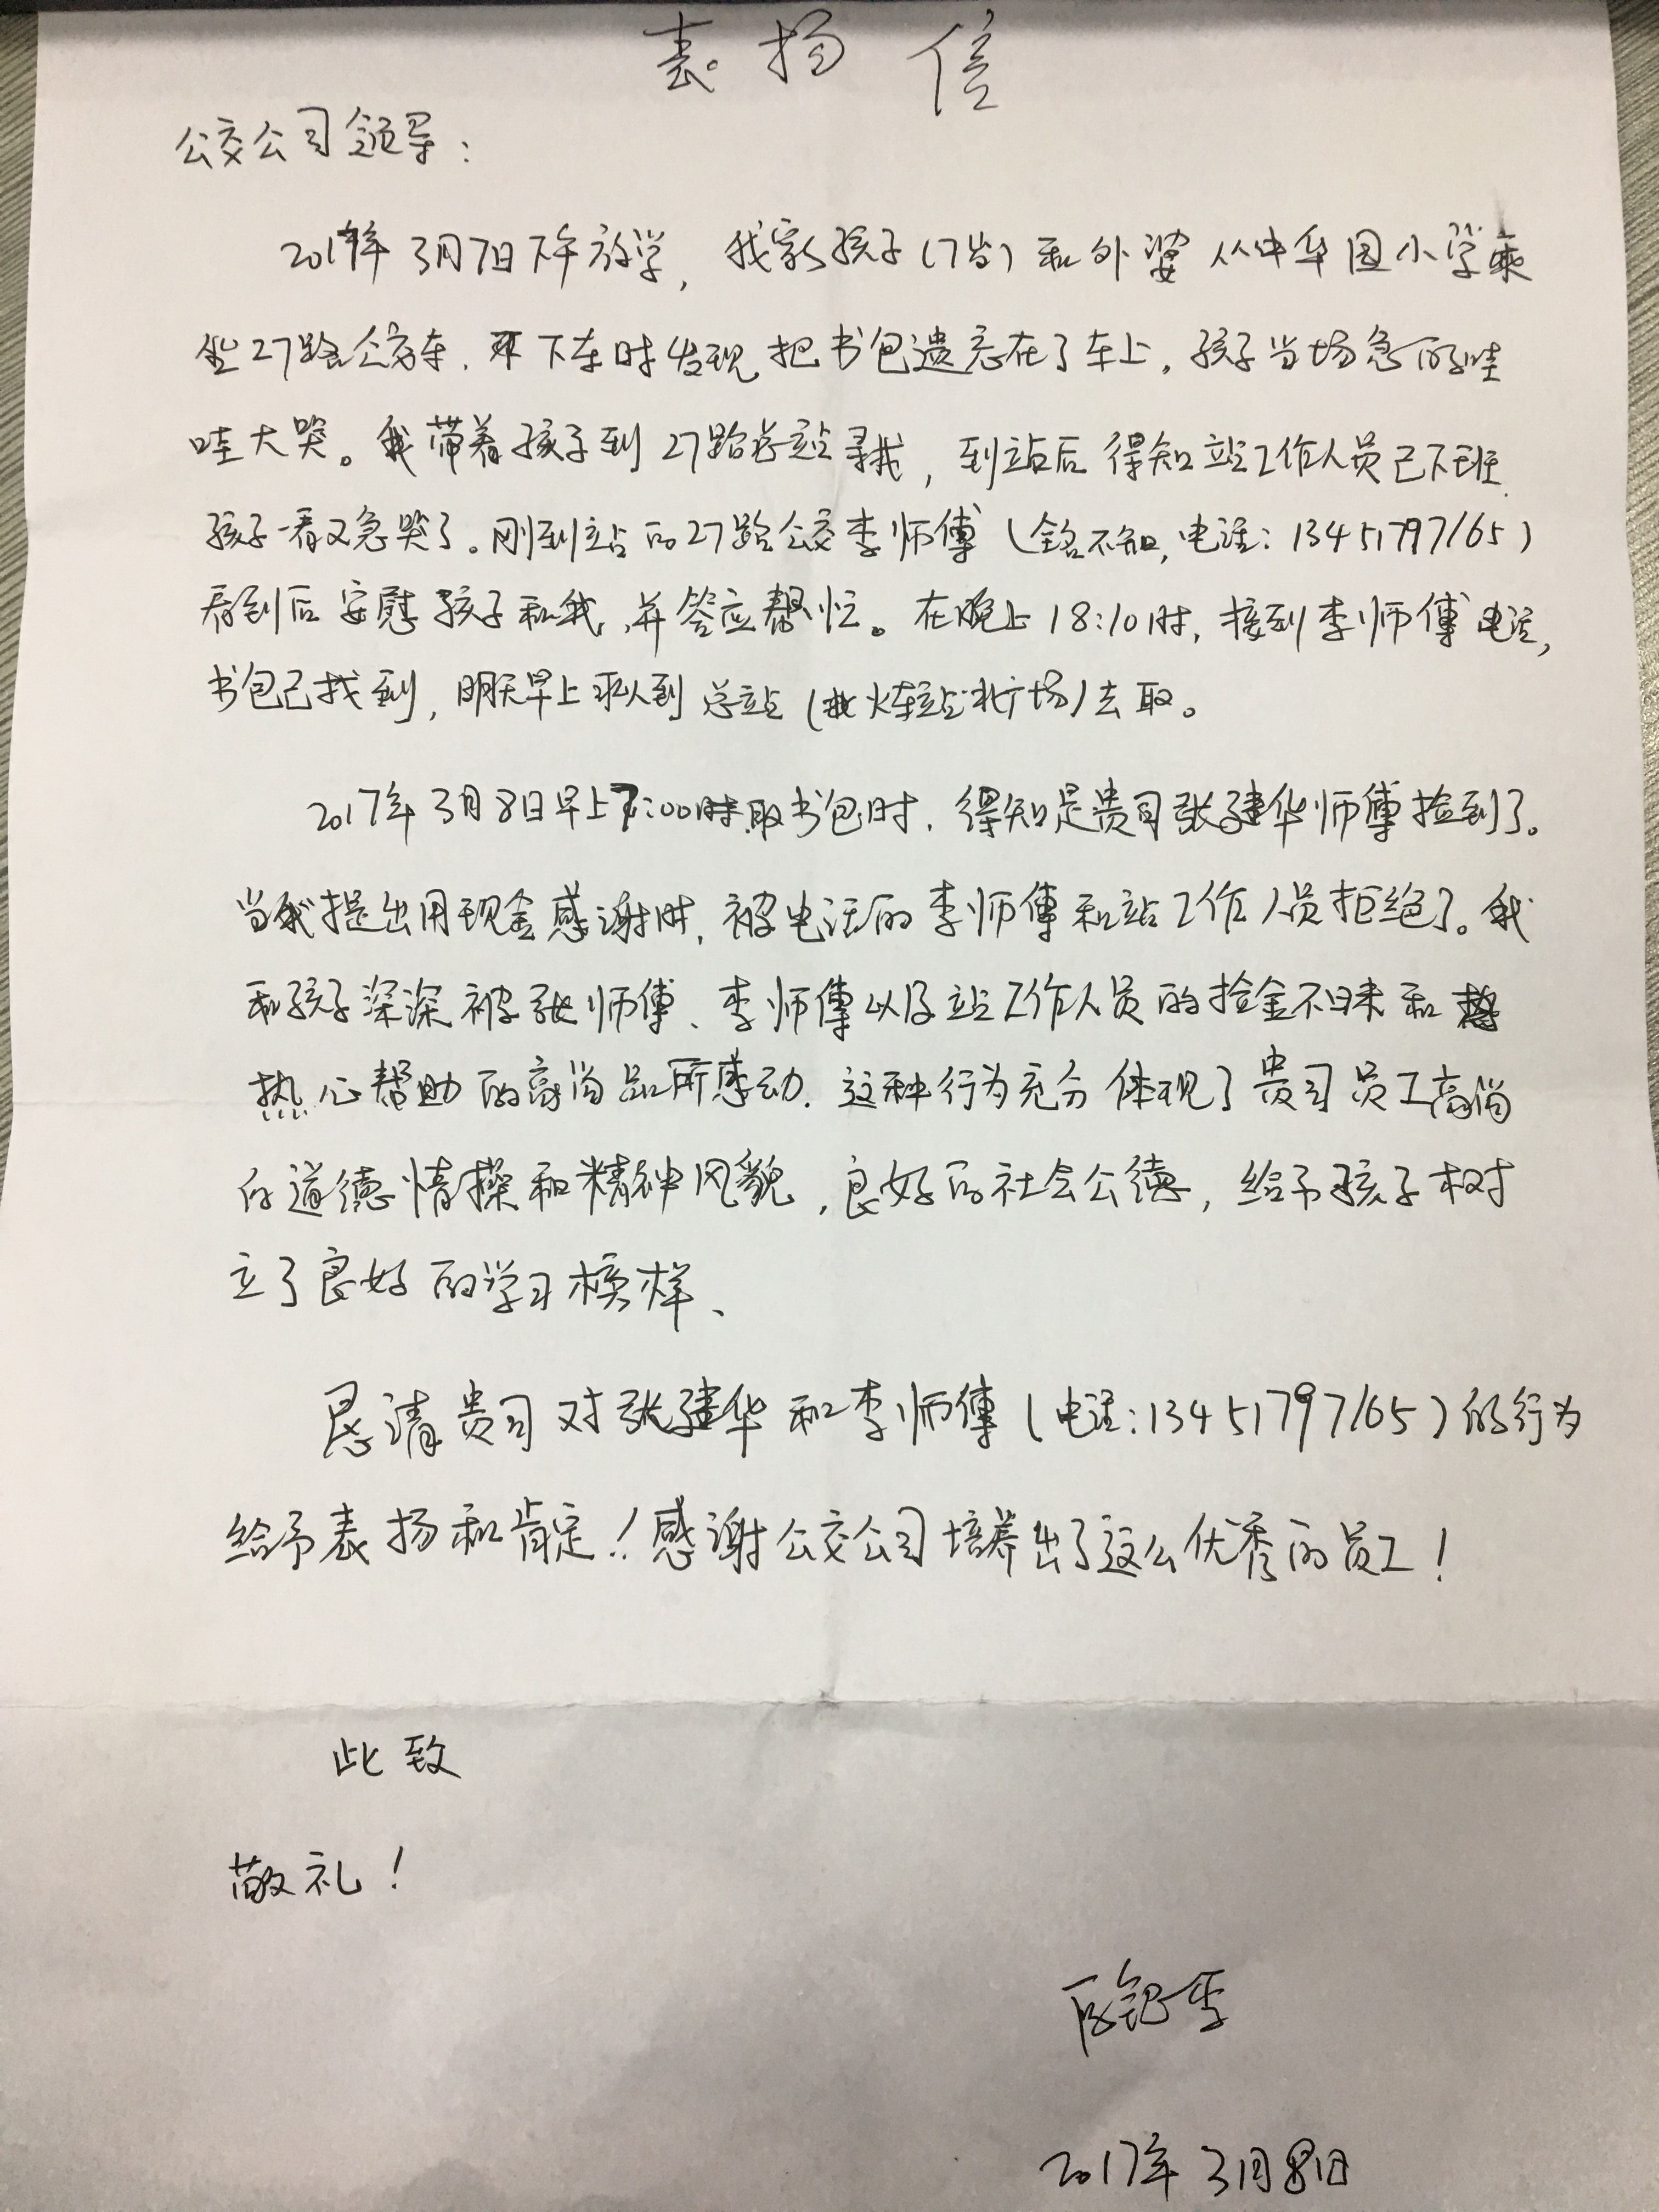 表扬信
公交公司领导：
2017年3月7日下午放学，我家孩子（7岁）和外婆从中华园小学乘
坐27路公交车，下车时发现把书包遗忘在了车上，孩子当场急的哇
哇大哭。我带着孩子到27路总站寻找，到站后得知站工作人员已下班
孩子一看又急哭了。刚到站的27路公交李师傅（全名不知，电话：13451797165）
看到后安慰孩子和我，并答应帮忙。在晚上18:10时，接到李师傅电话，
书包已找到，明天早上派人到总站（火车站北广场）去取。
2017年3月8日早上7:00时取书包时，得知是贵司张建华师傅捡到了。
当我提出用现金感谢时，被电话的李师傅和站工作人员拒绝了。我
和孩子深深被张师傅、李师傅以及站工作人员的捡金不昧和
热心帮助的高尚品所感动．这种行为充分体现了贵司员工高尚
的道德情操和精神风貌，良好的社会公德，给予孩子树
立了良好的学习榜样、
恳请贵司对张建华和李师傅（电话：13451797165）的行为
给予表扬和肯定！感谢公交公司培养出了这么优秀的员工！
此致
敬礼！
2017年3月8日